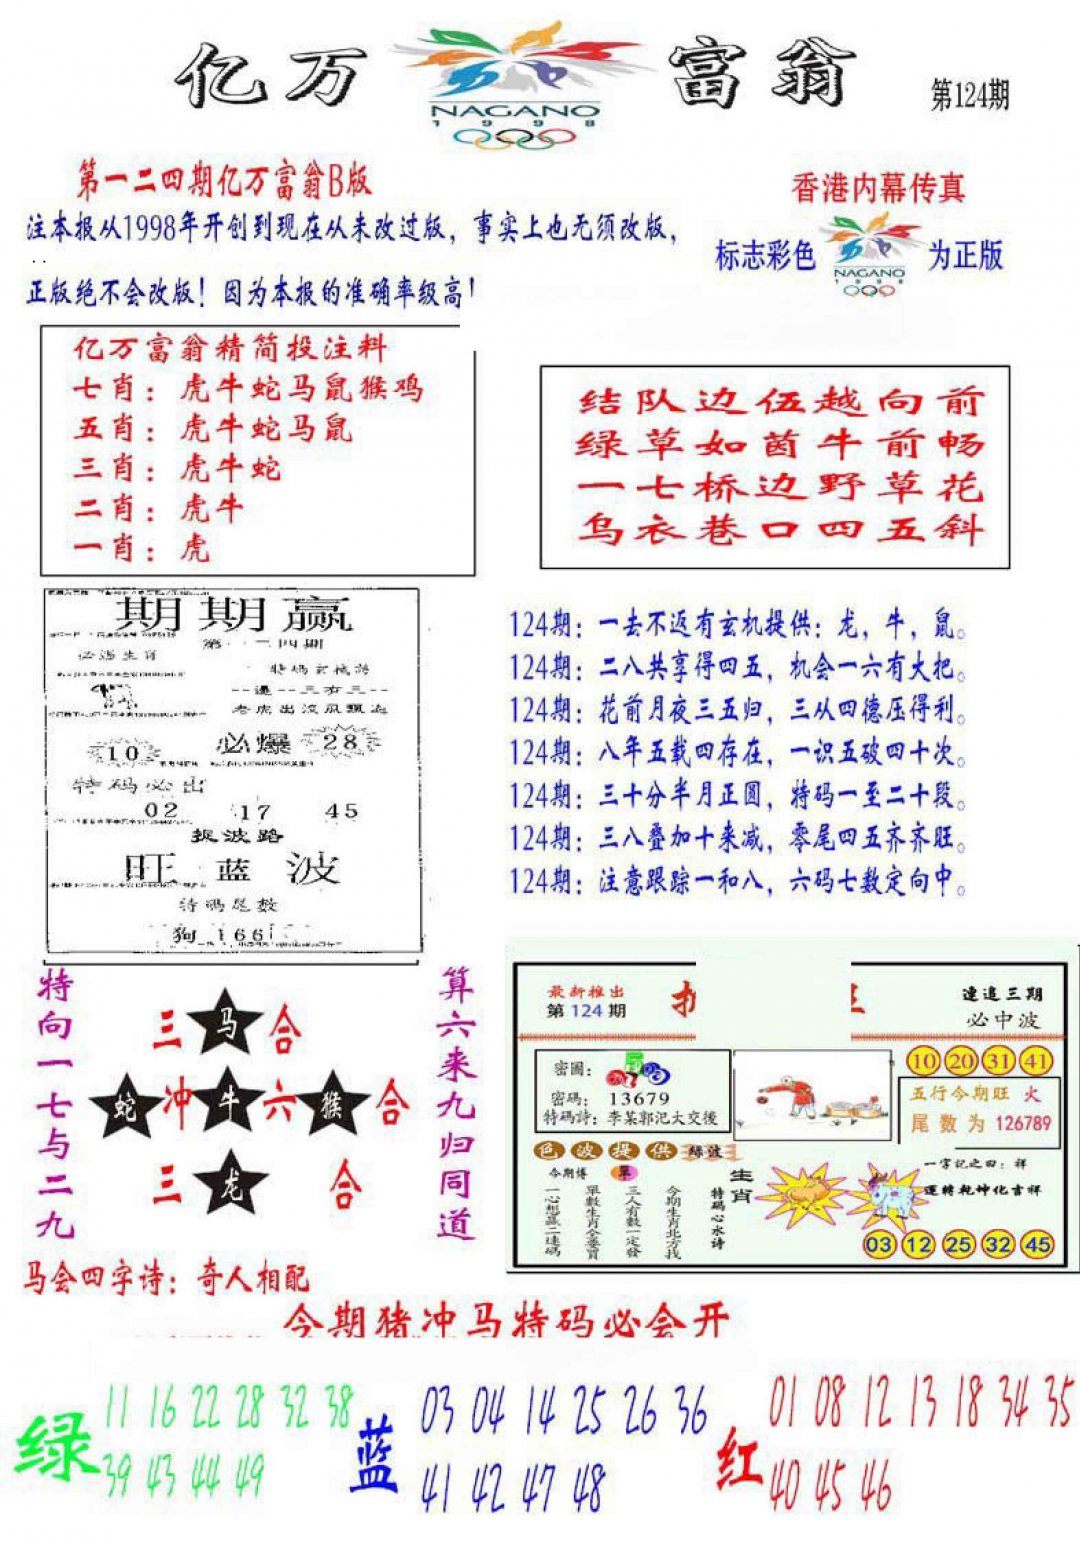 亿万富翁
NAGANO
1998
第124期
第一二四期亿万富翁B版
注本报从1998年开创到现在从未改过版，事实上也无须改版，
正版绝不会改版！因为本报的准确率级高！
香港内幕传真
标志彩色
NAGANO
1998
为正版
亿万富翁精简投注料
七肖：虎牛蛇马鼠猴鸡
五肖：虎牛蛇马鼠
三肖：虎牛蛇
二肖：虎牛
一肖：虎
结队边伍越向前
绿草如茵牛前畅
一七桥边野草花
乌衣巷口四五斜
期期赢
第一二四期
必造生肖
特码玄机诗
老虎出流风飘
10
必爆
28
特码必出
02 17 45
捉波路
旺蓝波
特码尾数
狗 166
124期：一去不返有玄机提供：龙，牛，鼠。
124期：二八共享得四五，机会一六有大把。
124期：花前月夜三五归，三从四德压得利。
124期：八年五载四存在，一识五破四十次。
124期：三十分半月正圆，特码一至二十段。
124期：三八叠加十来减，零尾四五齐齐旺。
124期：注意跟踪一和八，六码七数定向中。
特向一七与二九
三马合
蛇冲牛六猴合
三龙合
算六来九归同道
马会四字诗：奇人相配
最新推出
第124期
连追三期
必中波
密圖：
密碼：13679
特碼詩：李某郭汜大交後
10 20 31 41
五行今期旺 火
尾数为 126789
色波提供 綠波
今期博 單
一心想贏二連碼
單數生肖全要買
三人有數一定發
今期生肖北方找
特碼心水诗
生肖
一字记之曰：祥
運轉乾坤化吉祥
03 12 25 32 45
今期猪冲马特码必会开
绿
11 16 22 28 32 38
39 43 44 49
蓝
03 04 14 25 26 36
41 42 47 48
红
01 08 12 13 18 34 35
40 45 46